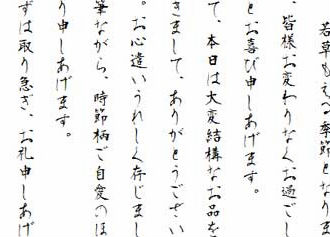 若草もえる季節となりま
、皆様お変わりなくお過ごし
とお喜び申しあげます。
て、本日は大変結構なお品を
きまして、ありがとうござい
。お心遣いうれしく存じまし
筆ながら、時節柄ご自愛のほ
り申しあげます。
ずは取り急ぎ、お礼申しあげ